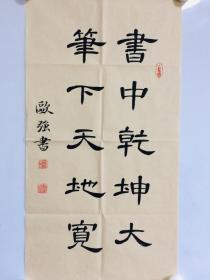 書中乾坤大
筆下天地寬
歐强書